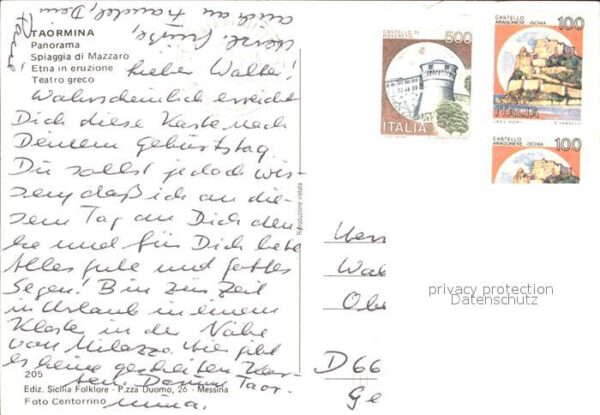 TAORMINA
Panorama
Spiaggia di Mazzaro
Etna in eruzione
Teatro greco
Lieber Walter!
Wahrscheinlich erreicht
Dich diese Karte nach
Deinem Geburtstag.
Du sollst jedoch wis-
sen, daß ich an die-
sem Tag an Dich den-
ke und für Dich bete
Alles gute und Gottes
Segen! Bin zur Zeit
in Urlaub in einem
Kloster in der Nähe
von Milazzo. Hier gibt
es keine gescheiten Kar-
ten. Darum Taor-
mina.
Herzl. Grüße,
auch an
Dein
205
Ediz. Sicilia Folklore - P.zza Duomo, 26 - Messina
Foto Centorrino
Riproduzione vietata
CASTELLO DI
ROVERETO
500
ITALIA
CASTELLO
ARAGONESE - ISCHIA
100
ITALIA
CASTELLO
ARAGONESE - ISCHIA
100
Herr
Wal
Obe
D 66
Ge
privacy protection
Datenschutz